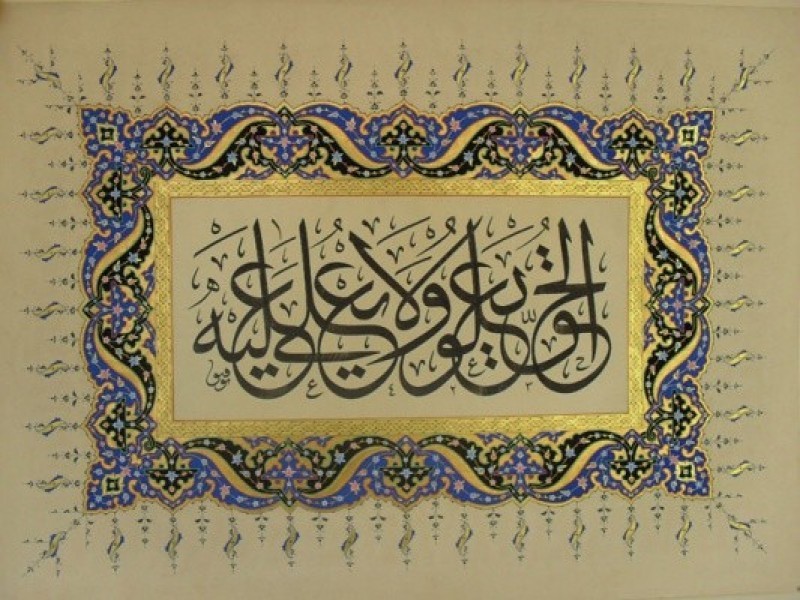 الحق يعلو ولا يعلى عليه